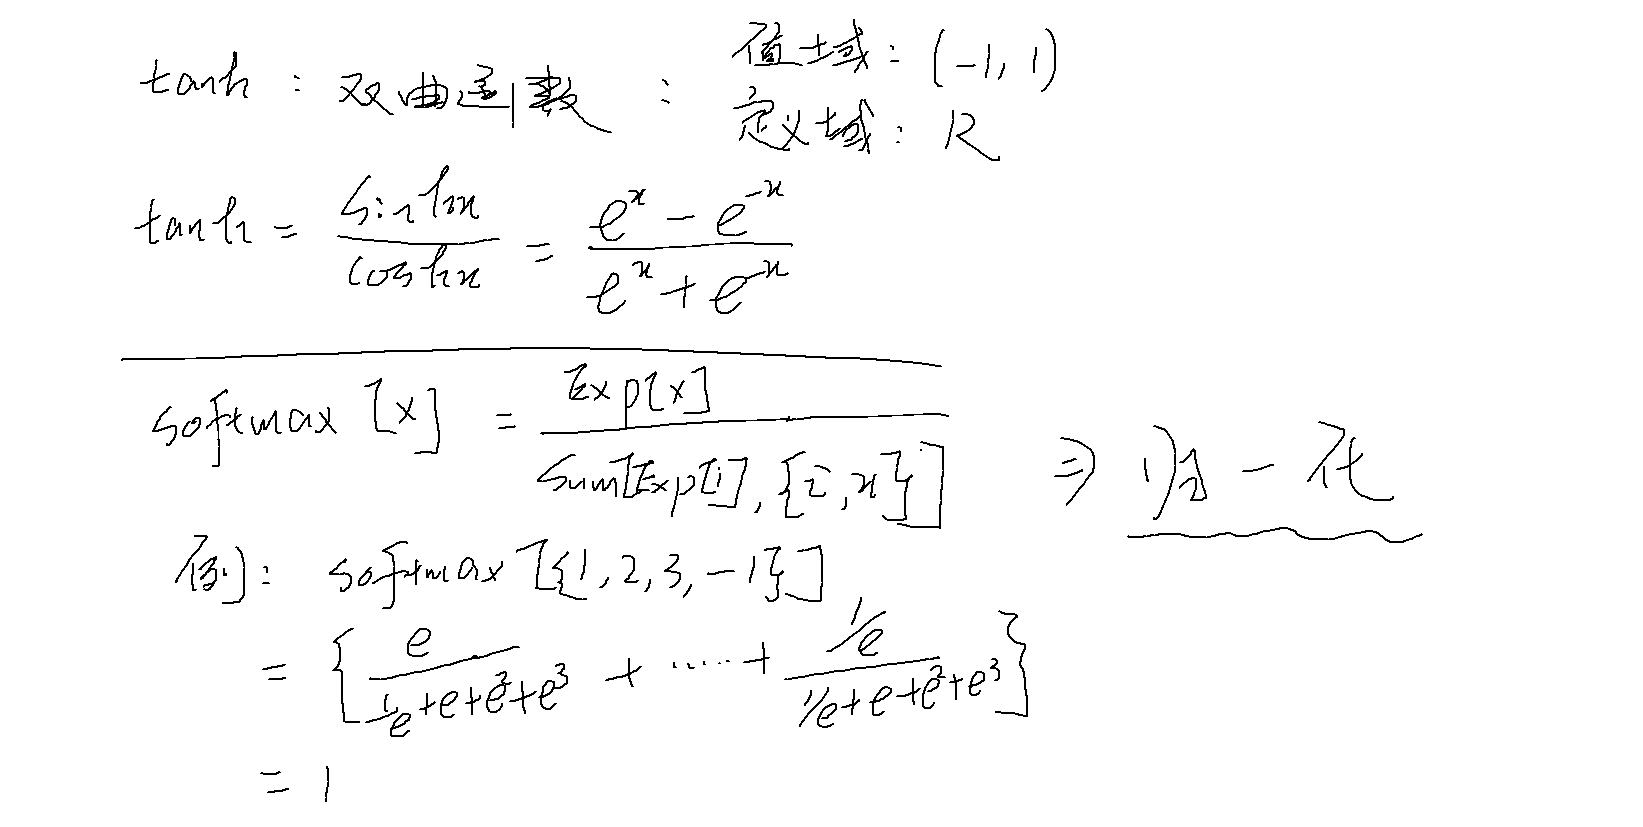 tanh : 双曲函数 : 值域: (-1, 1)
定义域: R
tanh = sinhx / coshx = e^x - e^-x / e^x + e^-x
softmax [x] = Exp[x] / Sum[Exp[i], {i, x}] ⇒ 归一化
例: softmax [{1, 2, 3, -1}]
= { e / 1/e+e+e^2+e^3 + ...... + 1/e / 1/e+e+e^2+e^3 }
= 1